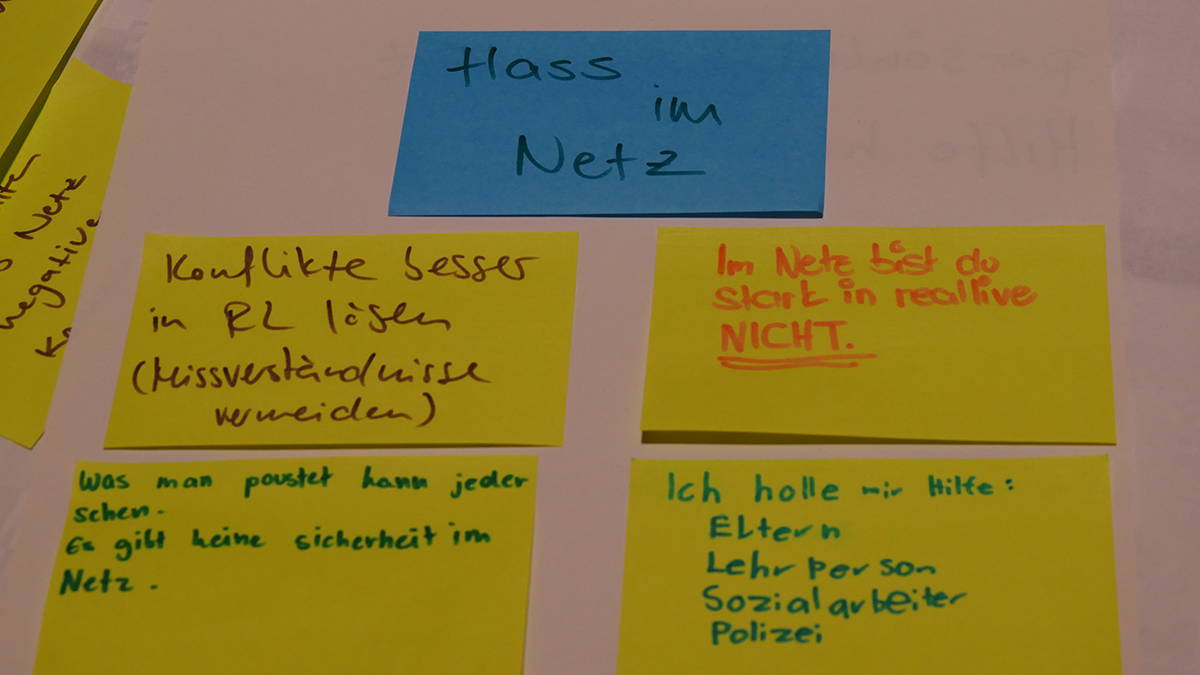 Hass
im
Netz
Konflikte besser
in RL lösen
(Missverständnisse
vermeiden)
Im Netz bist du
stark in reallive
NICHT.
Was man poustet kann jeder
sehen.
Es gibt keine sicherheit im
Netz.
Ich holle mir Hilfe:
Eltern
Lehrperson
Sozialarbeiter
Polizei
Netz
negative